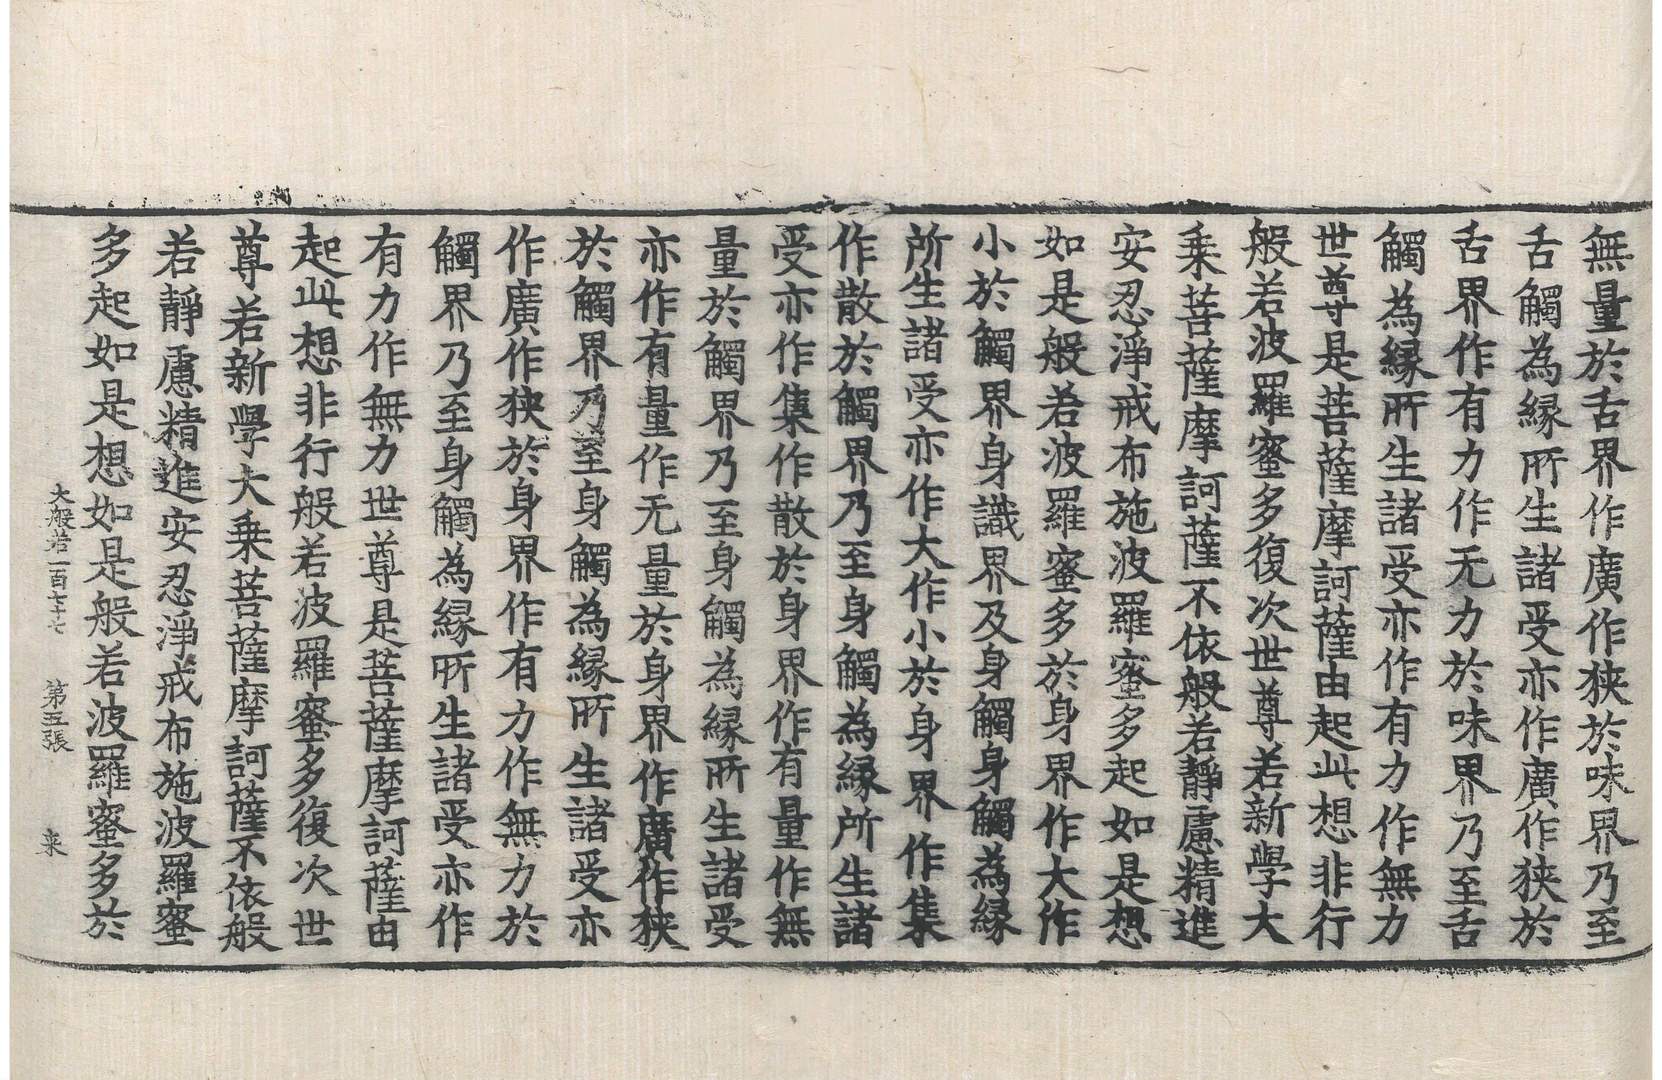 無量於舌界作廣作狹於味界乃至
舌觸為緣所生諸受亦作廣作狹於
舌界作有力作无力於味界乃至舌
觸為緣所生諸受亦作有力作無力
世尊是菩薩摩訶薩由起此想非行
般若波羅蜜多復次世尊若新學大
乗菩薩摩訶薩不依般若靜慮精進
安忍淨戒布施波羅蜜多起如是想
如是般若波羅蜜多於身界作大作
小於觸界身識界及身觸身觸為緣
所生諸受亦作大作小於身界作集
作散於觸界乃至身觸為緣所生諸
受亦作集作散於身界作有量作無
量於觸界乃至身觸為緣所生諸受
亦作有量作无量於身界作廣作狹
於觸界乃至身觸為緣所生諸受亦
作廣作狹於身界作有力作無力於
觸界乃至身觸為緣所生諸受亦作
有力作無力世尊是菩薩摩訶薩由
起此想非行般若波羅蜜多復次世
尊若新學大乗菩薩摩訶薩不依般
若靜慮精進安忍淨戒布施波羅蜜
多起如是想如是般若波羅蜜多於
大般若一百七十七 第五張 來